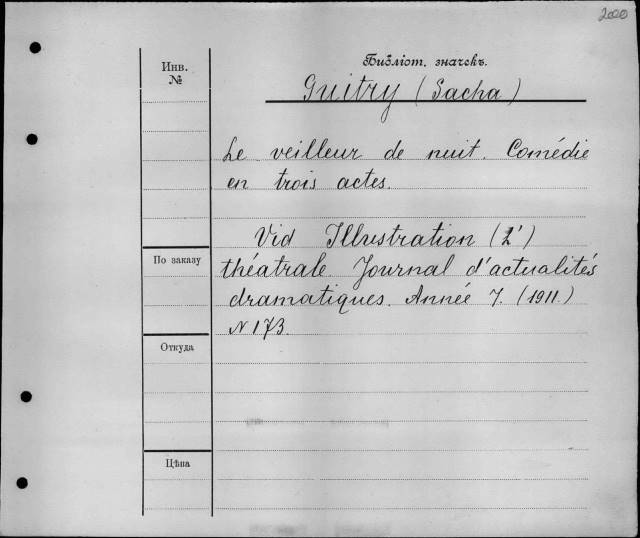 2000
Библіот. значекъ.
Инв.
№
Guitry (Sacha)
Le veilleur de nuit. Comédie
en trois actes.
Vid Illustration (L')
théatrale Journal d'actualités
dramatiques. Année 7. (1911.)
N 173.
По заказу
Откуда
Цѣна